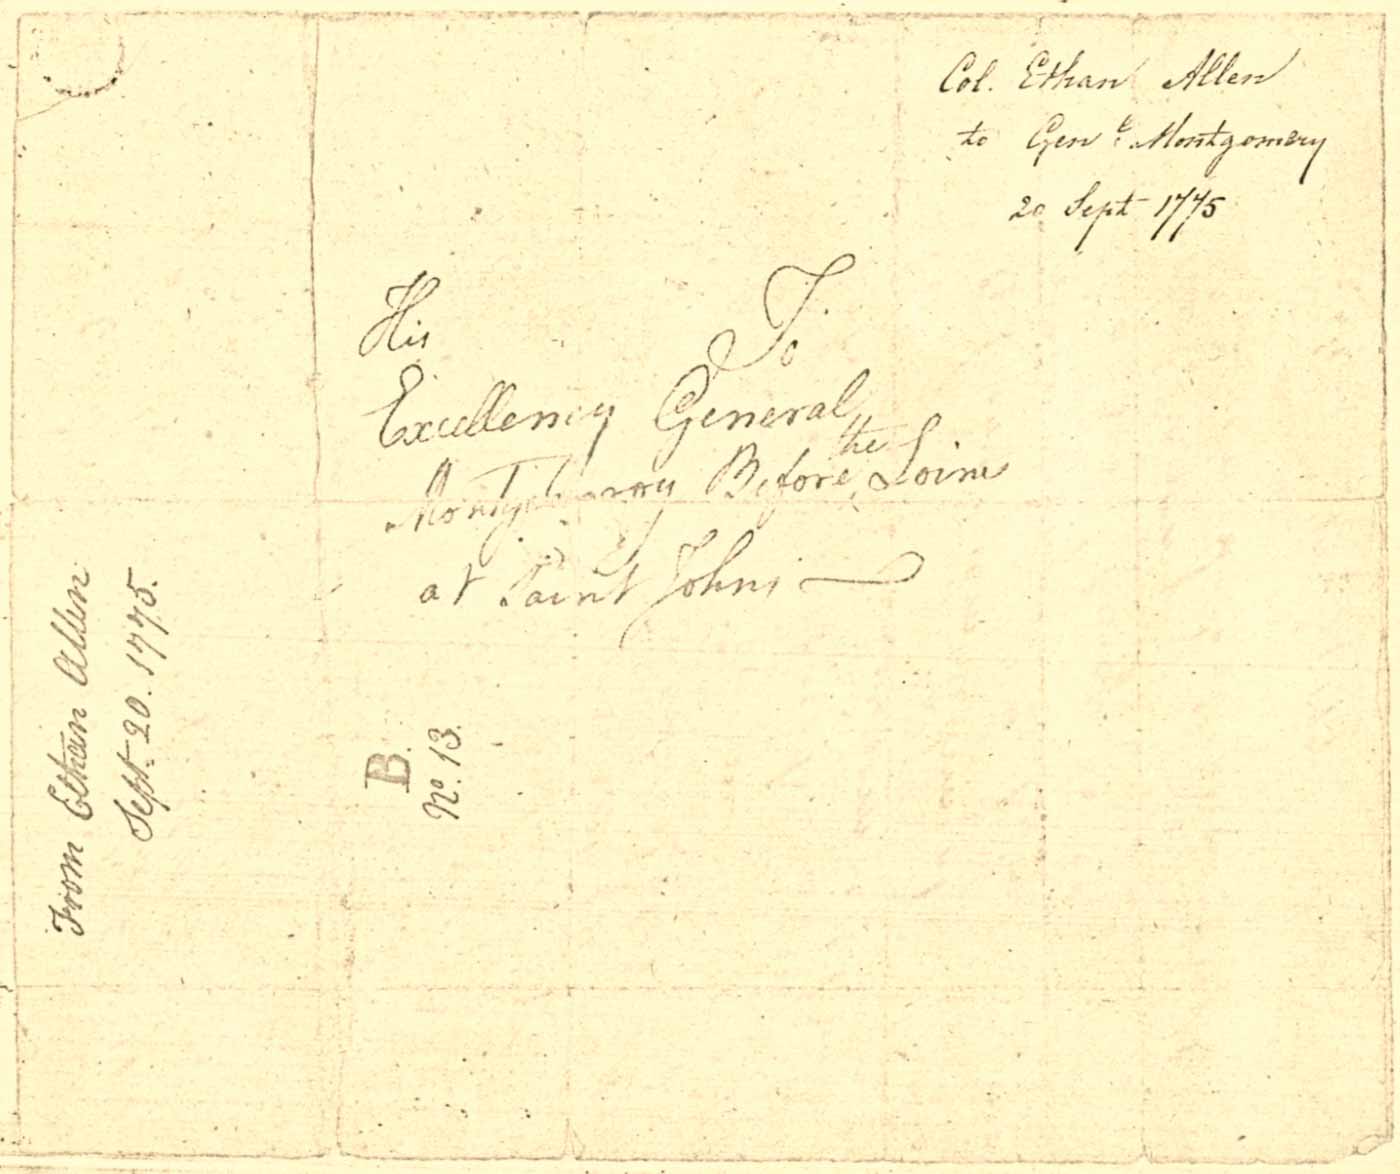 Col. Ethan Allen
to Gen.l Montgomery
20 Sept 1775
To
His
Excellency General
Before the
at Saint Johns
From Ethan Allen
Sept. 20. 1775.
B.
No. 13.